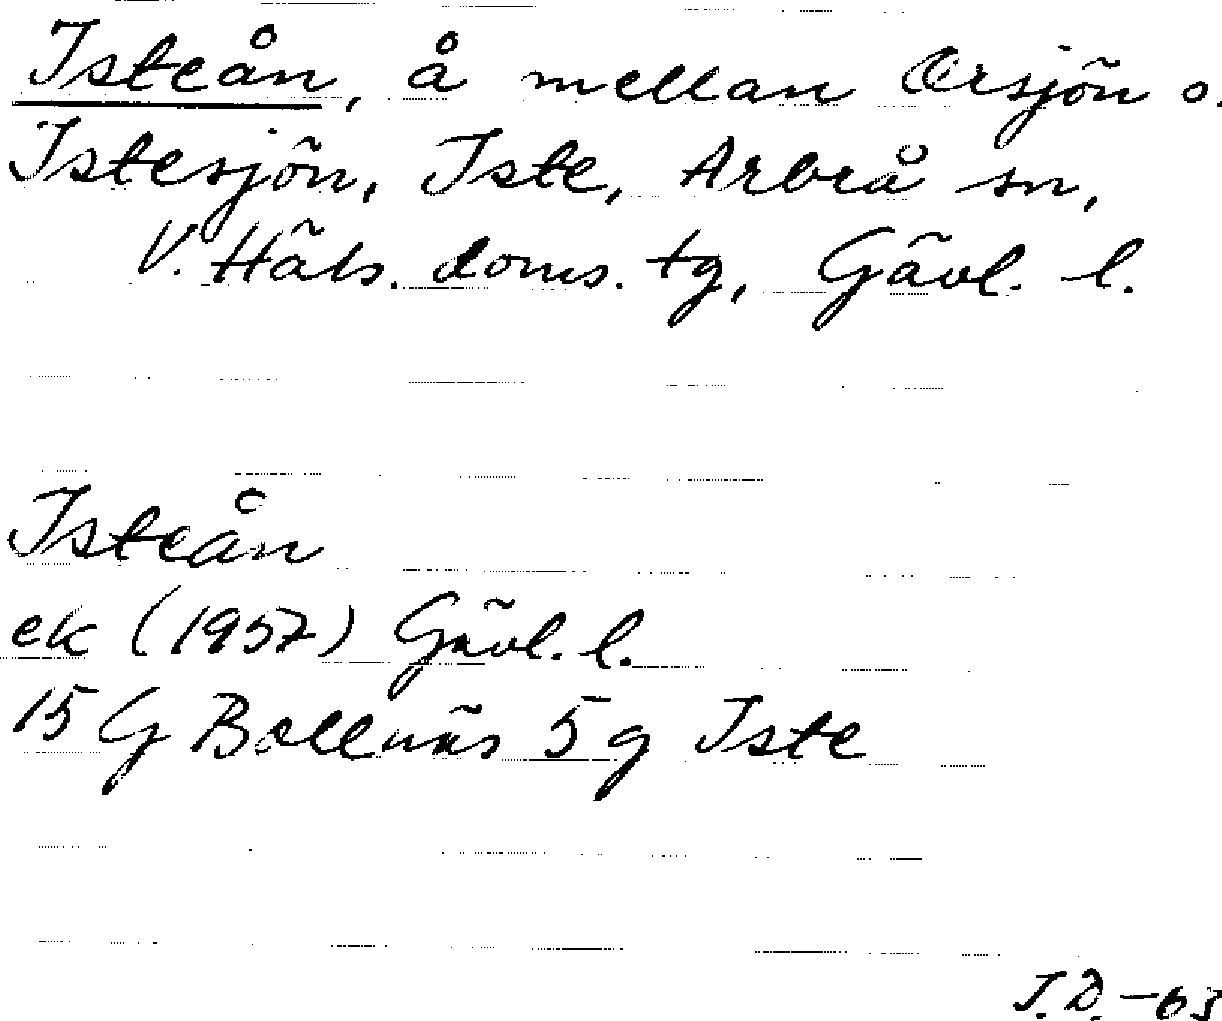 Isteån, å mellan Orsjön o.
Istesjön, Iste, Arbrå sn,
V. Häls. doms. tg, Gävl. l.
Isteån
ek (1957) Gävl. l.
15 G Bollnäs 5 g Iste
J.D. -63